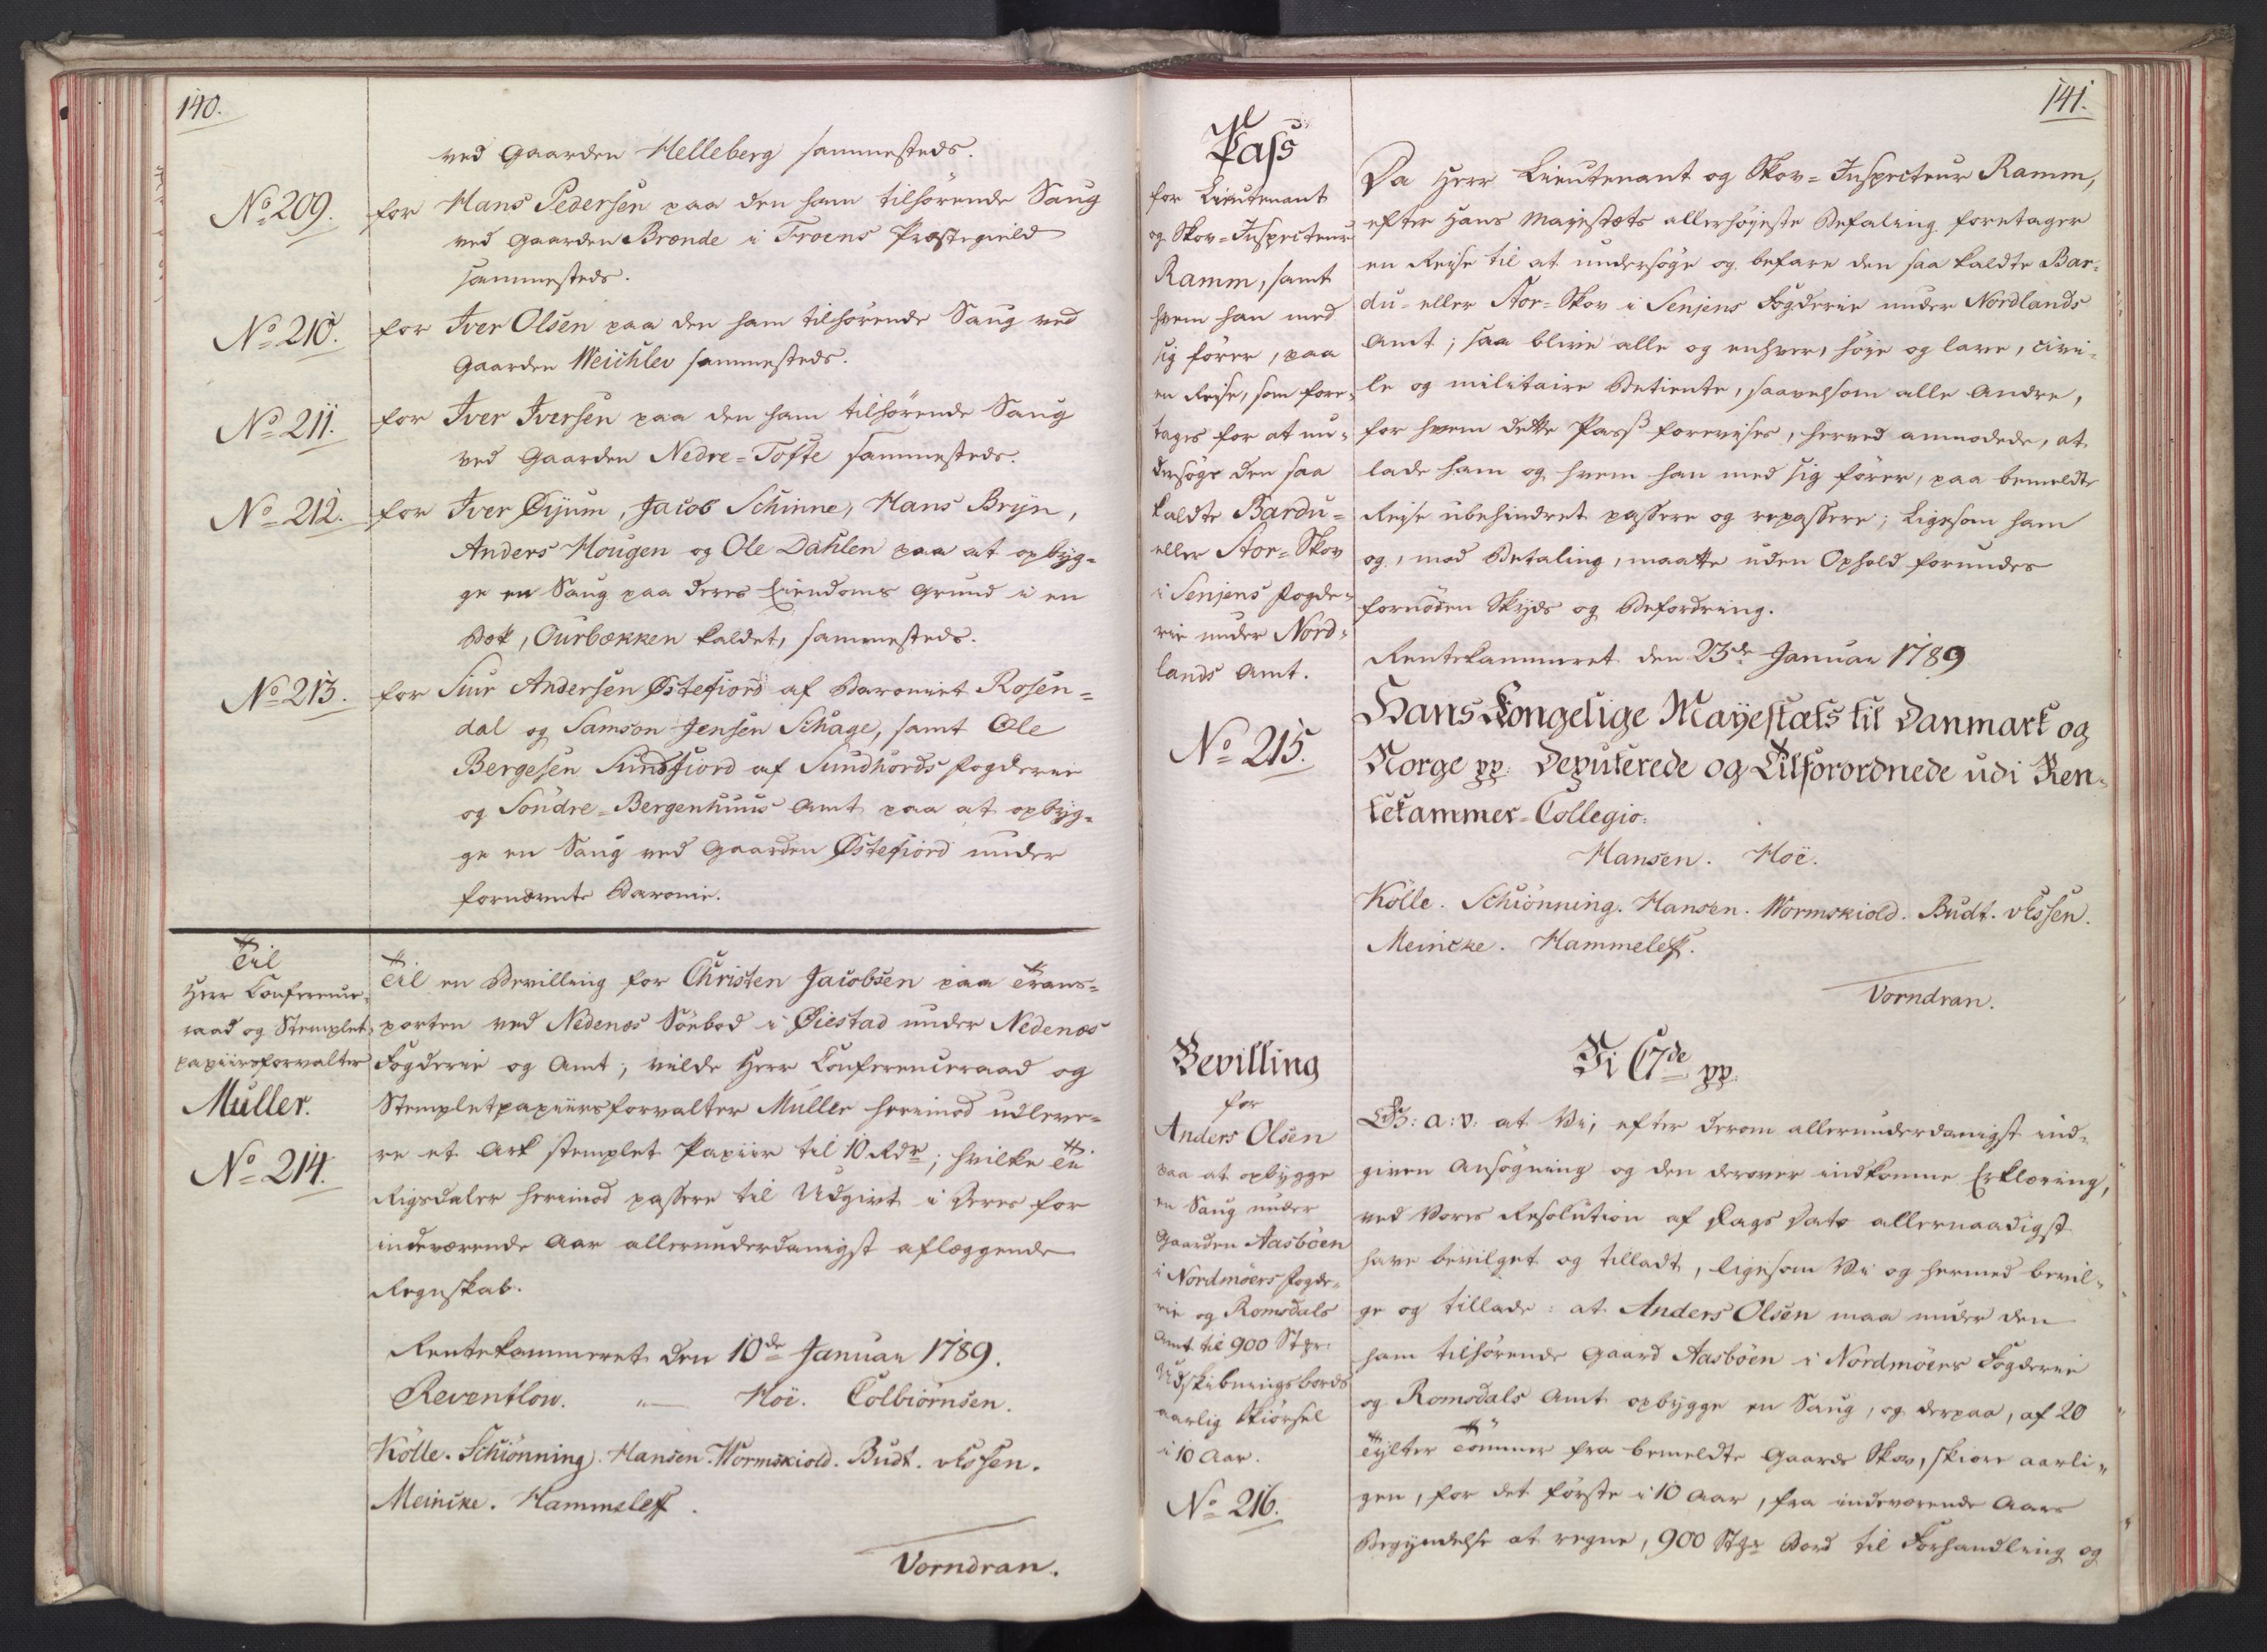 140.
ved Gaarden Helleberg sammesteds.
No 209. for Hans Pedersen paa den ham tilhörende Saug
ved Gaarden Brænde i Froens Præstegield
sammesteds.
No 210. for Iver Olsen paa den ham tilhörende Saug ved
Gaarden Weichlev sammesteds.
No 211. for Iver Iversen paa den ham tilhörende Saug
ved Gaarden Nedre-Tofte sammesteds.
No 212. for Iver Øijum, Jacob Schinne, Hans Brijn,
Anders Hougen og Ole Dahlen paa at opbyg-
ge en Saug paa deres Eiendoms Grund i en
Bæk, Ourbækken kaldet, sammesteds.
No 213. for Siur Andersen Østefiord af Baroniet Rosen-
dal og Samson Jensen Schage, samt Ole
Bergesen Sundfiord af Sundhords Fogderie
og Söndre-Bergenhuus Amt paa at opbyg-
ge en Saug ved Gaarden Østefiord under
fornævnte Baronie.
Til
Herr Conference-
raad og Stemplet-
papiirsforvalter
Müller.
No 214.
Til en Bevilling for Christen Jacobsen paa Trans-
porten ved Nedenæs Söebod i Øiestad under Nedenæs
Fogderie og Amt; vilde Herr Conferenceraad og
Stempletpapiirsforvalter Müller herimod udleve-
re et Ark stemplet Papiir til 10 Rdr; hvilke Ti
Rigsdaler herimod passere til Udgivt i Deres for
indeværende Aar allerunderdanigst aflæggende
Regnskab.
Rentekammeret den 10de Januar 1789.
Reventlow. "— Hoë. Colbiörnsen.
Kölle. Schiönning. Hansen. Wormskiold. Budt. vEssen.
Meincke. Hammeleff.
Vorndran.
141.
Pass
for Lieutenant
og Skov-Inspecteur
Ramm, samt
hvem han med
sig förer, paa
en Reise, som fore-
tages for at un-
dersöge den saa
kaldte Bardu-
eller Stor-Skov
i Senjens Fogde-
rie under Nord-
lands Amt.
No 215.
Da Herr Lieutenant og Skov-Inspecteur Ramm,
efter Hans Majestæts allerhöjeste Befaling foretager
en Rejse til at undersöge og befare den saa kaldte Bar-
du- eller Stor-Skov i Senjens Fogderie under Nordlands
Amt; saa blive alle og enhver, höje og lave, civi-
le og militaire Betiente, saavelsom alle Andre,
for hvem dette Pass forevises, herved anmodede, at
lade ham og hvem han med sig förer, paa bemeldte
Rejse ubehindret passere og repassere; ligesom ham
og, mod Betaling, maatte uden Ophold forundes
fornöden Skyds og Befordring.
Rentekammeret den 23de Januar 1789
Hans Kongelige Mayestæts til Danmark og
Norge pp. Deputerede og Tilforordnede udi Ren-
tekammer-Collegio.
Hansen. Hoë.
Kölle. Schiönning. Hansen. Wormskiold. Budt. vEssen.
Meincke. Hammeleff.
Vorndran.
Bevilling
for
Anders Olsen
paa at opbygge
en Saug under
Gaarden Aasböen
i Nordmöers Fogde-
rie og Romsdals
Amt til 900 Stpr:
Udskibningsbords
aarlig Skiörsel
i 10 Aar.
No 216.
Vi C7de pp.
G: a: v: at Vi, efter derom allerunderdanigst ind-
given Ansögning og den derover indkomne Erklæring,
ved Vores Resolution af Dags Dato allernaadigst
have bevilget og tilladt, ligesom Vi og hermed bevil-
ge og tillade: at Anders Olsen maa under den
ham tilhörende Gaard Aasböen i Nordmöers Fogderie
og Romsdals Amt opbygge en Saug, og derpaa, af 20
Tylter Tömmer fra bemeldte Gaards Skov, skiære aarli-
gen, for det förste i 10 Aar, fra indeværende Aars
Begyndelse at regne, 900 Stpr Bord til Forhandling og